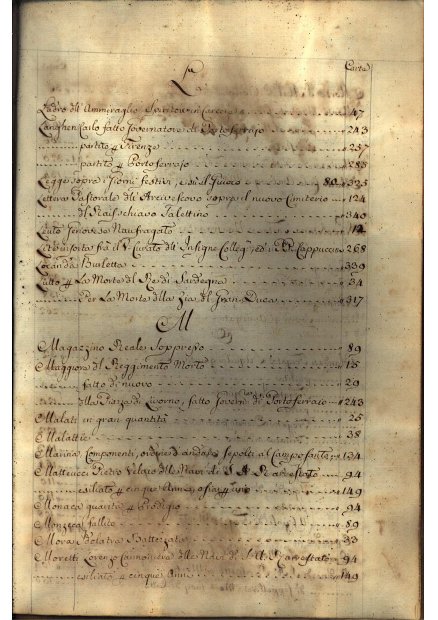 Carte
L
Ladro dell'Ammiraglio Spiridow in Carcere 47
Langhen Carlo fatto Governatore di Portoferrajo 243
partito p Firenze 257
partito p Portoferrajo 285
Legge sopra i Giorni festivi, e sù il Giuoco 80 325
Lettera Pastorale dell'Arcivescovo sopra il nuovo Cimiterio 124
del Raisschiavo Valettino 340
Leuto Genovese Naufragato 12
Lite insorta frà il Curato dell'Insigne Colleg. ed i PP. Cappuccini 268
Locanda Burletta 339
Lutto p La Morte del Re di Sardegna 54
Per La Morte della Zia del Gran Duca 317
M
Magazzino Reale Soppresso 89
Maggiore del Reggimento Morto 15
fatto di nuovo 29
della Piazza di Livorno, fatto Govern. di Portoferraio 243
Malati in gran quantità 25
Malattie 38
Marina, Componenti, ordine d'andare sepolti al Campo Santo 134
Matteucci Pietro Velaio delle Navi di S. A. R. arrestato 94
esiliato p cinque Anni, 149
Monaca quanta p Prodigio 94
Monzeca fallito 89
Mora Idolatra Battezzata 33
Moretti Lorenzo Cannoniere delle Navi R. S. A. R. arrestato 94
esiliato p cinque Anni 149